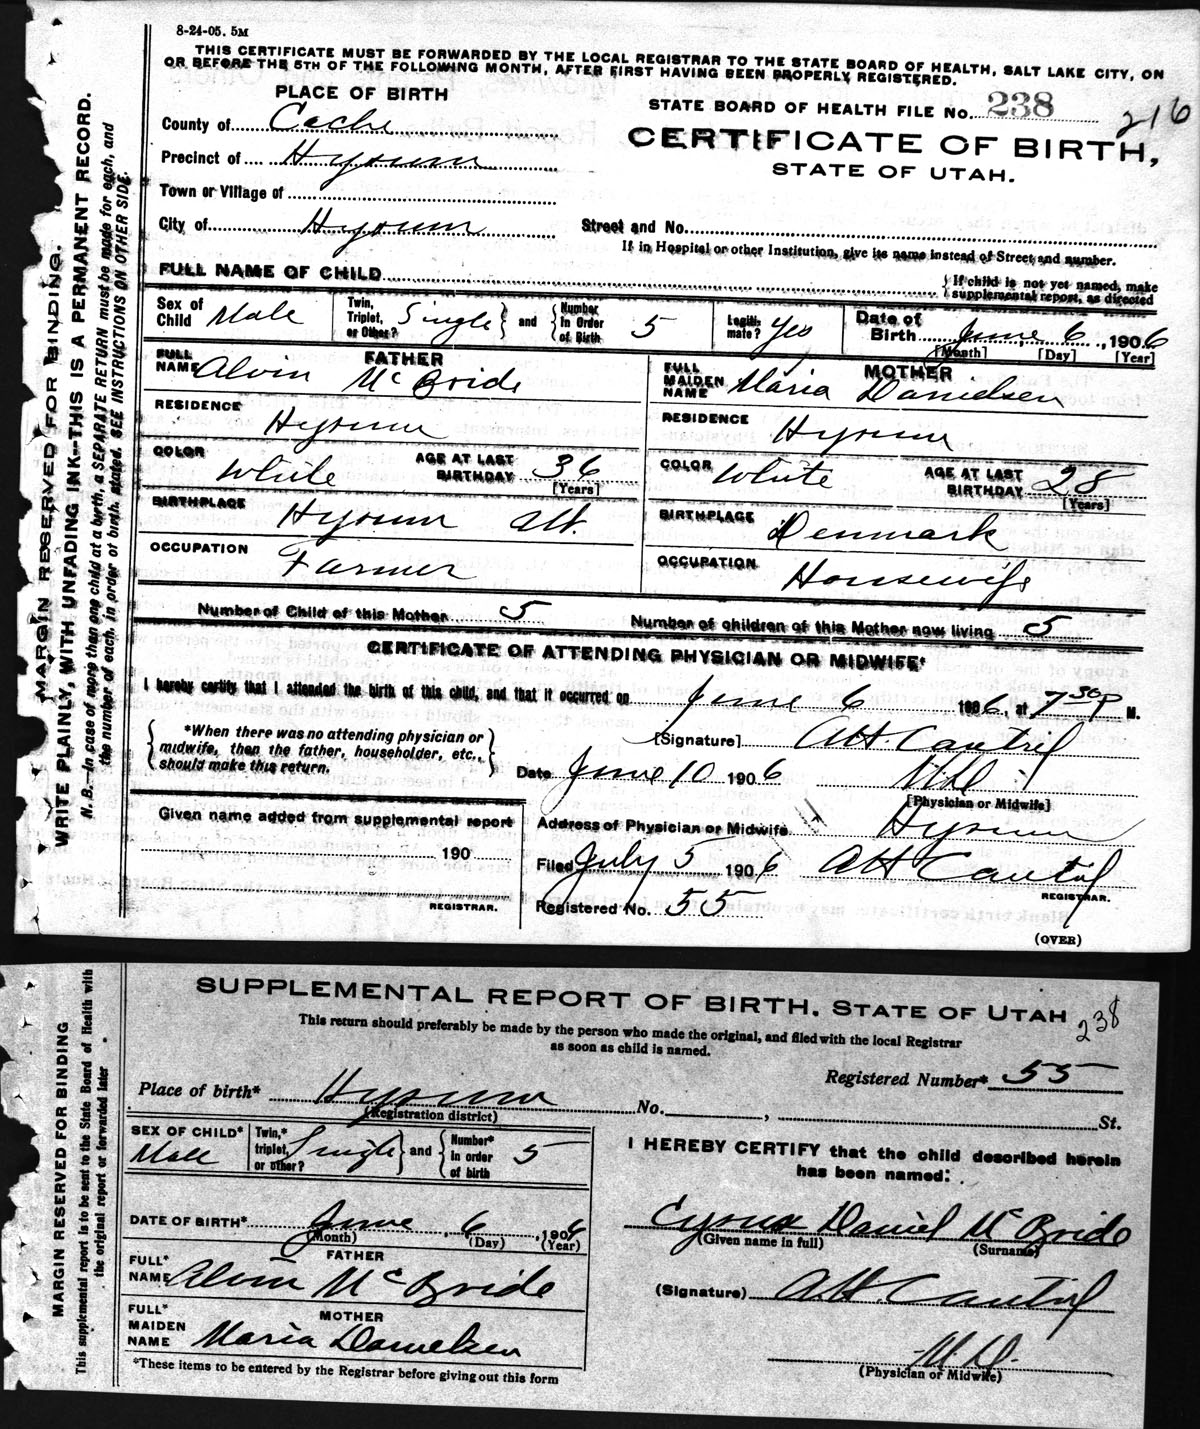 8-24-05. 5M
THIS CERTIFICATE MUST BE FORWARDED BY THE LOCAL REGISTRAR TO THE STATE BOARD OF HEALTH, SALT LAKE CITY, ON
OR BEFORE THE 5TH OF THE FOLLOWING MONTH, AFTER FIRST HAVING BEEN PROPERLY REGISTERED.
MARGIN RESERVED FOR BINDING.
WRITE PLAINLY, WITH UNFADING INK--THIS IS A PERMANENT RECORD.
N. B.--In case of more than one child at a birth, a SEPARATE RETURN must be made for each, and
the number of each, in order of birth, stated. SEE INSTRUCTIONS ON OTHER SIDE.
PLACE OF BIRTH
STATE BOARD OF HEALTH FILE NO. 238
216
County of Cache
CERTIFICATE OF BIRTH,
STATE OF UTAH.
Precinct of Hyrum
Town or Village of
City of Hyrum
Street and No.
If in Hospital or other Institution, give its name instead of Street and number.
FULL NAME OF CHILD
{If child is not yet named, make
supplemental report, as directed
Sex of Child Male
Twin, Triplet, or Other? Single } and { Number in Order of Birth 5
Legiti- mate? Yes
Date of Birth June 6, 1906
[Month] [Day] [Year]
FATHER
FULL NAME Alvin McBride
MOTHER
FULL MAIDEN NAME Maria Danielsen
RESIDENCE Hyrum
RESIDENCE Hyrum
COLOR White AGE AT LAST BIRTHDAY 36 [Years]
COLOR White AGE AT LAST BIRTHDAY 28 [Years]
BIRTHPLACE Hyrum Ut.
BIRTHPLACE Denmark
OCCUPATION Farmer
OCCUPATION Housewife
Number of Child of this Mother 5
Number of children of this Mother now living 5
CERTIFICATE OF ATTENDING PHYSICIAN OR MIDWIFE*
I hereby certify that I attended the birth of this child, and that it occurred on June 6 1906, at 7 30 P M.
{*When there was no attending physician or
midwife, then the father, householder, etc.,
should make this return.}
[Signature] A.H. Cantril
Date June 10 1906
M.D.
[Physician or Midwife]
Given name added from supplemental report
190
REGISTRAR.
Address of Physician or Midwife Hyrum
Filed July 5 1906 AH Cantril
REGISTRAR.
Registered No. 55
(OVER)
MARGIN RESERVED FOR BINDING
This supplemental report is to be sent to the State Board of Health with
the original report or forwarded later
SUPPLEMENTAL REPORT OF BIRTH, STATE OF UTAH
238
This return should preferably be made by the person who made the original, and filed with the local Registrar
as soon as child is named.
Registered Number* 55
Place of birth* Hyrum No. , St.
(Registration district)
SEX OF CHILD* Male
Twin,* triplet, or other? Single } and { Number* in order of birth 5
I HEREBY CERTIFY that the child described herein
has been named:
DATE OF BIRTH* June 6, 1906
(Month) (Day) (Year)
Cyrus Daniel McBride
(Given name in full) (Surname)
FATHER
FULL* NAME Alvin McBride
(Signature) A.H. Cantril
MOTHER
FULL* MAIDEN NAME Maria Danielsen
M.D.
(Physician or Midwife)
*These items to be entered by the Registrar before giving out this form